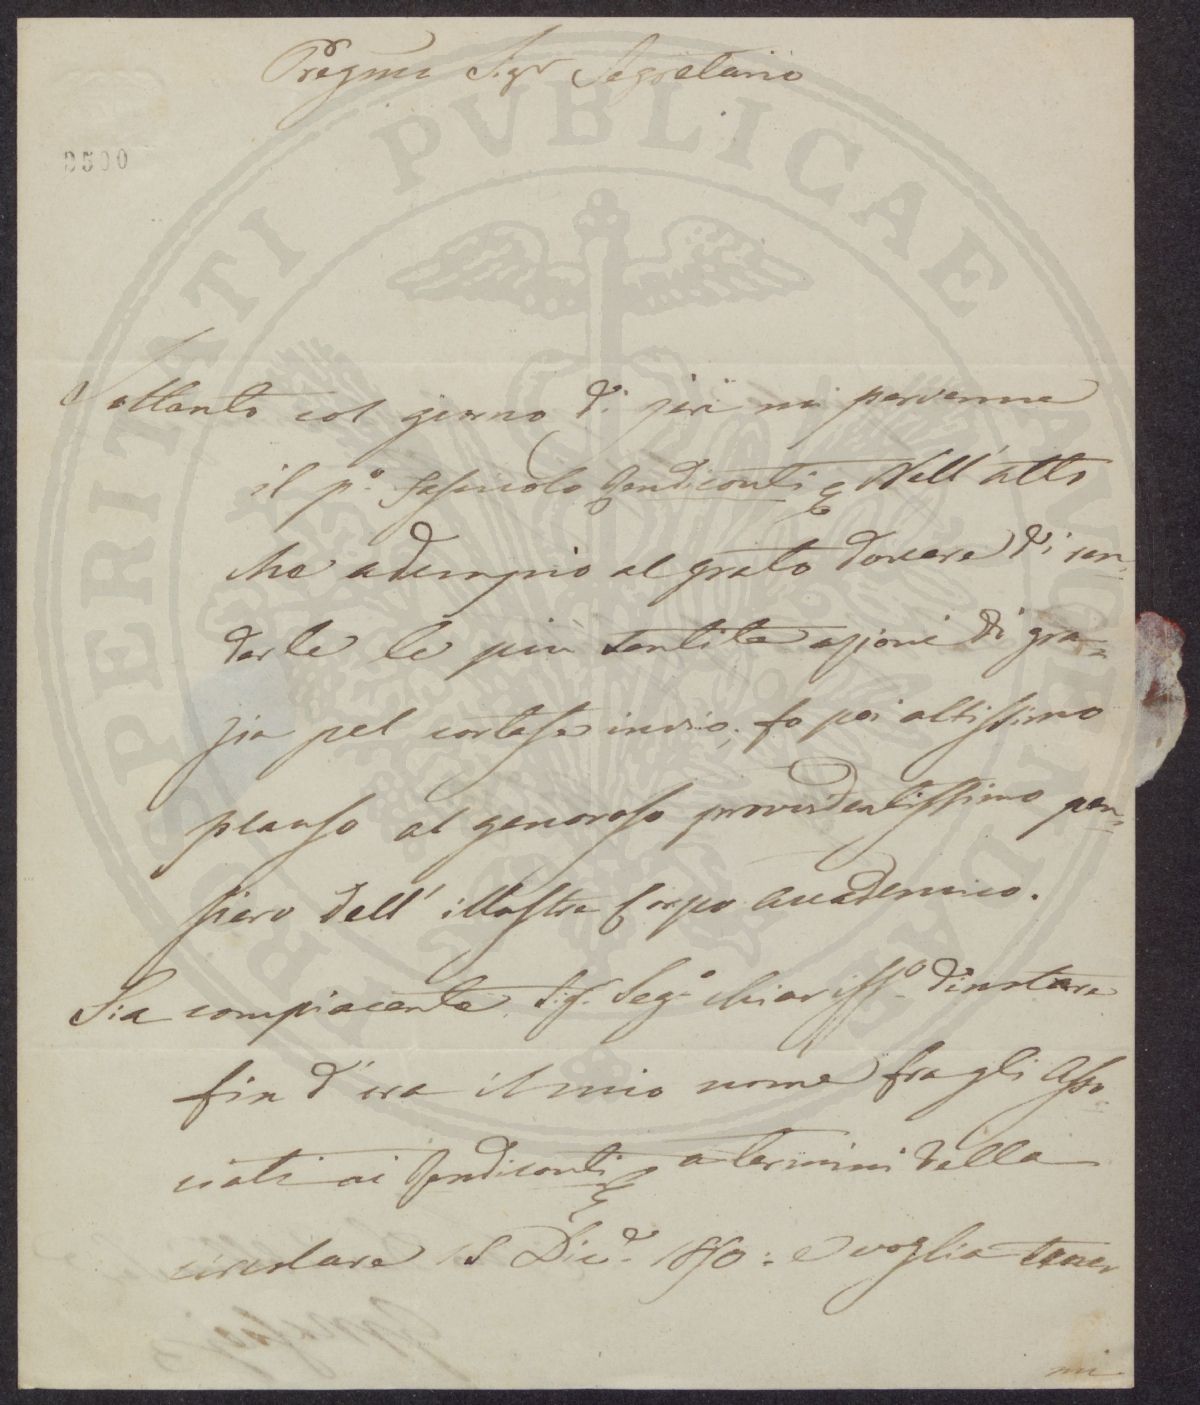 Pregmo Sigr Segretario
3500
Soltanto col giorno di jeri mi pervenne
il po. fascicolo Rendiconti & Nell'atto
che adempio al grato dovere di ren-
derle le più sentite azioni di gra-
zia pel cortese invio, fo poi altissimo
plauso al generoso provvidentissimo pen-
siero dell'illustre Corpo Accademico.
Sia compiacente Sig. Sego. chiarisso. d'inotare
fin d'ora il mio nome fra gli Asso-
ciati ai Rendiconti & a termini della
circolare 15 Dice. 1850: e voglia tener
mi
PROSPERITATI PVBLICAE AVGENDAE